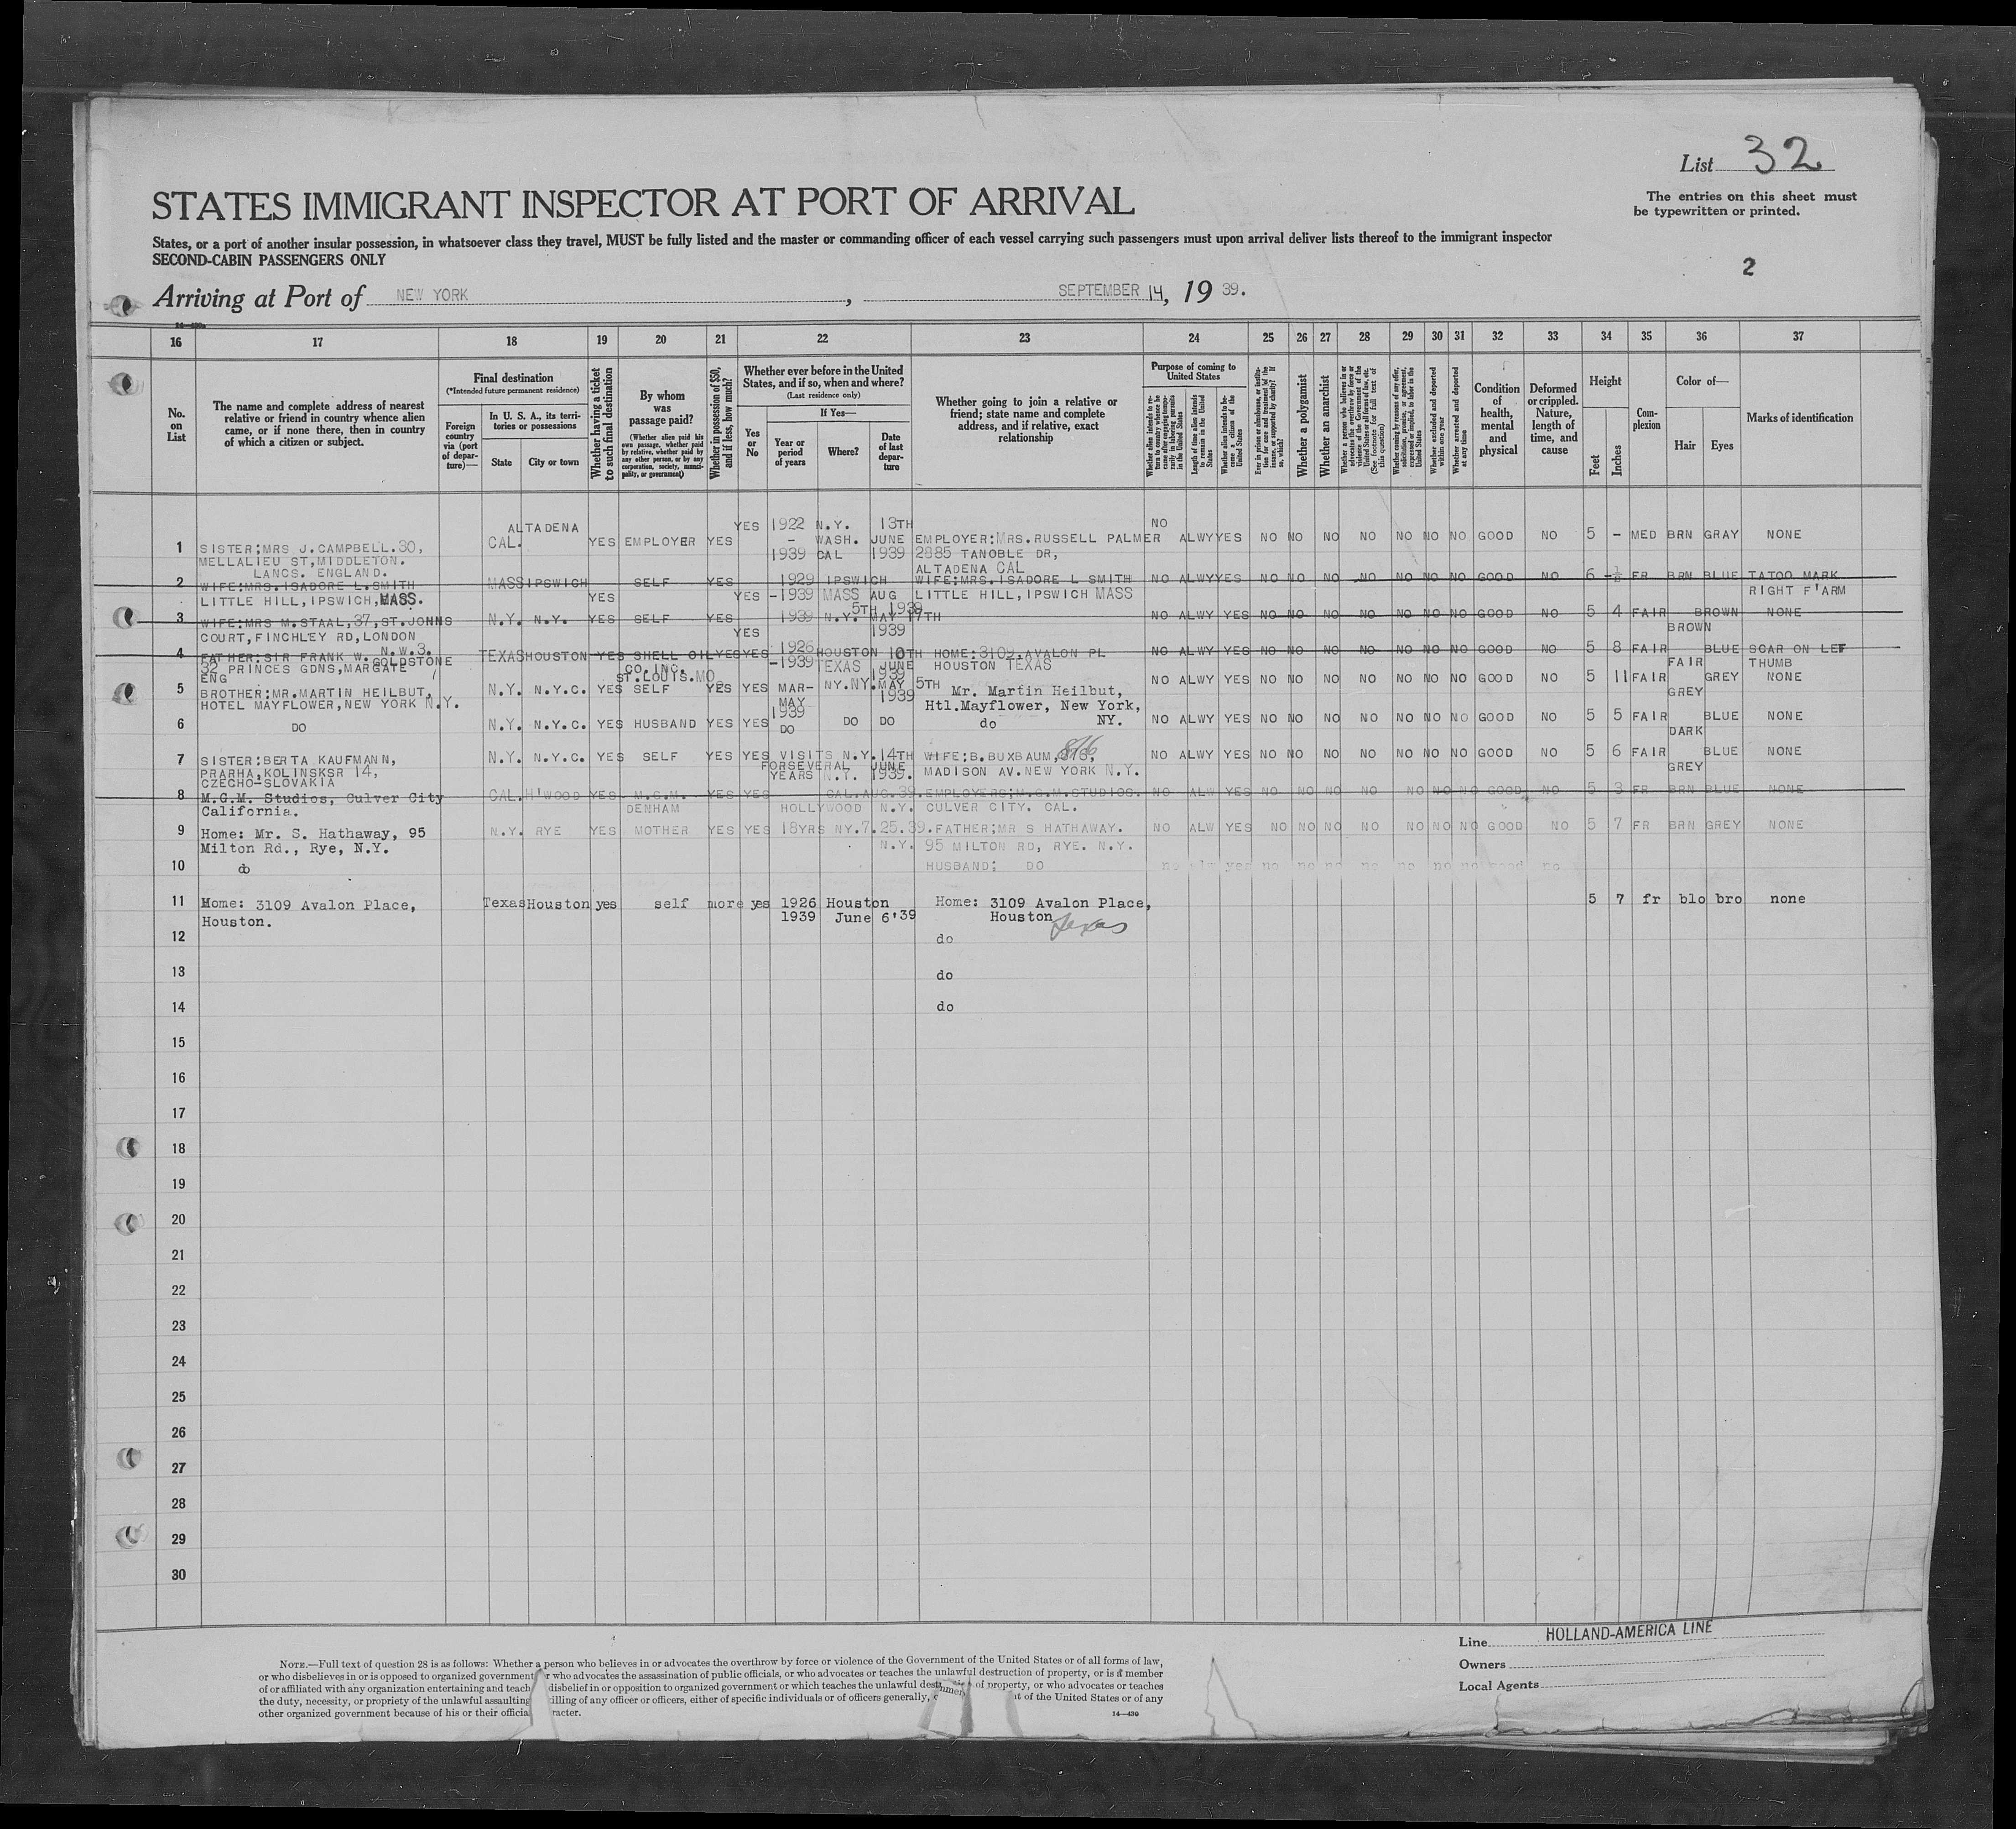 List 32
The entries on this sheet must
be typewritten or printed.
STATES IMMIGRANT INSPECTOR AT PORT OF ARRIVAL
States, or a port of another insular possession, in whatsoever class they travel, MUST be fully listed and the master or commanding officer of each vessel carrying such passengers must upon arrival deliver lists thereof to the immigrant inspector
SECOND-CABIN PASSENGERS ONLY
2
Arriving at Port of NEW YORK, SEPTEMBER 14, 19 39.
16 17 18 19 20 21 22 23 24 25 26 27 28 29 30 31 32 33 34 35 36 37
No. on List
The name and complete address of nearest relative or friend in country whence alien came, or if none there, then in country of which a citizen or subject.
Final destination
(*Intended future permanent residence)
Foreign country via (port of departure)—
In U. S. A., its territories or possessions
State
City or town
Whether having a ticket to such final destination
By whom was passage paid?
(Whether alien paid his own passage, whether paid by relative, whether paid by any other person, or by any corporation, society, municipality, or government)
Whether in possession of $50, and if less, how much?
Whether ever before in the United States, and if so, when and where?
(Last residence only)
Yes or No
If Yes—
Year or period of years
Where?
Date of last departure
Whether going to join a relative or friend; state name and complete address, and if relative, exact relationship
Purpose of coming to United States
Length of time alien intends to remain in the United States
Whether alien intends to become a citizen of the United States
Whether a polygamist
Whether an anarchist
Whether excluded and deported within one year
Whether arrested and deported at any time
Condition of health, mental and physical
Deformed or crippled. Nature, length of time, and cause
Height
Feet
Inches
Complexion
Color of—
Hair
Eyes
Marks of identification
ALTADENA YES 1922 N.Y. 13TH NO
1 SISTER:MRS J.CAMPBELL.30, CAL. YES EMPLOYER YES – WASH. JUNE EMPLOYER:MRS.RUSSELL PALMER ALWY YES NO NO NO NO NO NO NO GOOD NO 5 – MED BRN GRAY NONE
MELLALIEU ST,MIDDLETON. 1939 CAL 1939 2885 TANOBLE DR,
LANCS. ENGLAND. ALTADENA CAL
2 WIFE:MRS.ISADORE L.SMITH MASS IPSWICH SELF YES 1929 IPSWICH WIFE:MRS.ISADORE L SMITH NO ALWY YES NO NO NO NO NO NO NO GOOD NO 6 -½ FR BRN BLUE TATOO MARK
LITTLE HILL,IPSWICH,MASS. YES YES -1939 MASS AUG LITTLE HILL,IPSWICH MASS RIGHT F'ARM
5TH 1939
3 WIFE:MRS M.STAAL,37,ST.JOHNS N.Y. N.Y. YES SELF YES 1939 N.Y. MAY 17TH NO ALWY YES NO NO NO NO NO NO NO GOOD NO 5 4 FAIR BROWN NONE
COURT,FINCHLEY RD,LONDON YES 1939 BROWN
N.W.3.
4 FATHER:SIR FRANK W. GOLDSTONE TEXAS HOUSTON YES SHELL OIL YES YES 1926 HOUSTON 10TH HOME:3109,AVALON PL NO ALWY YES NO NO NO NO NO NO NO GOOD NO 5 8 FAIR BLUE SCAR ON LEF
32 PRINCES GDNS,MARGATE CO.INC. -1939 TEXAS JUNE HOUSTON TEXAS FAIR THUMB
ENG ST.LOUIS.MO 1939
5 BROTHER:MR.MARTIN HEILBUT, N.Y. N.Y.C. YES SELF YES YES MAR- NY.NY. MAY 5TH Mr. Martin Heilbut, NO ALWY YES NO NO NO NO NO NO NO GOOD NO 5 11 FAIR GREY NONE
HOTEL MAYFLOWER,NEW YORK N.Y. MAY 1939 Htl.Mayflower, New York, GREY
1939 NY.
6 DO N.Y. N.Y.C. YES HUSBAND YES YES DO DO DO do NO ALWY YES NO NO NO NO NO NO NO GOOD NO 5 5 FAIR BLUE NONE
DARK
7 SISTER:BERTA KAUFMANN, N.Y. N.Y.C. YES SELF YES YES VISITS N.Y. 14TH WIFE:B.BUXBAUM, 816 NO ALWY YES NO NO NO NO NO NO NO GOOD NO 5 6 FAIR BLUE NONE
PRARHA,KOLINSKSR 14, FORSEVERAL JUNE MADISON AV.NEW YORK N.Y. GREY
CZECHO-SLOVAKIA YEARS N.Y. 1939.
8 M.G.M. Studios, Culver City CAL. H'WOOD YES M.G.M. YES YES CAL.AUG.39. EMPLOYERS;M.G.M.STUDIOS. NO ALW YES NO NO NO NO NO NO NO GOOD NO 5 3 FR BRN BLUE NONE
California. DENHAM HOLLYWOOD N.Y. CULVER CITY. CAL.
9 Home: Mr. S. Hathaway, 95 N.Y. RYE YES MOTHER YES YES 18YRS NY.7.25.39. FATHER;MR S HATHAWAY. NO ALW YES NO NO NO NO NO NO NO GOOD NO 5 7 FR BRN GREY NONE
Milton Rd., Rye, N.Y. N.Y. 95 MILTON RD, RYE. N.Y.
10 do HUSBAND; DO no alw yes no no no no no no no good no
11 Home: 3109 Avalon Place, Texas Houston yes self more yes 1926 Houston Home: 3109 Avalon Place, 5 7 fr blo bro none
Houston. 1939 June 6'39 Houston Texas
12 do
13 do
14 do
15
16
17
18
19
20
21
22
23
24
25
26
27
28
29
30
NOTE.—Full text of question 28 is as follows: Whether a person who believes in or advocates the overthrow by force or violence of the Government of the United States or of all forms of law,
or who disbelieves in or is opposed to organized government or who advocates the assassination of public officials, or who advocates or teaches the unlawful destruction of property, or is a member
of or affiliated with any organization entertaining and teach disbelief in or opposition to organized government or which teaches the unlawful dest of property, or who advocates or teaches
the duty, necessity, or propriety of the unlawful assaulting illing of any officer or officers, either of specific individuals or of officers generally, t of the United States or of any
other organized government because of his or their official racter.
14—430
Line HOLLAND-AMERICA LINE
Owners
Local Agents